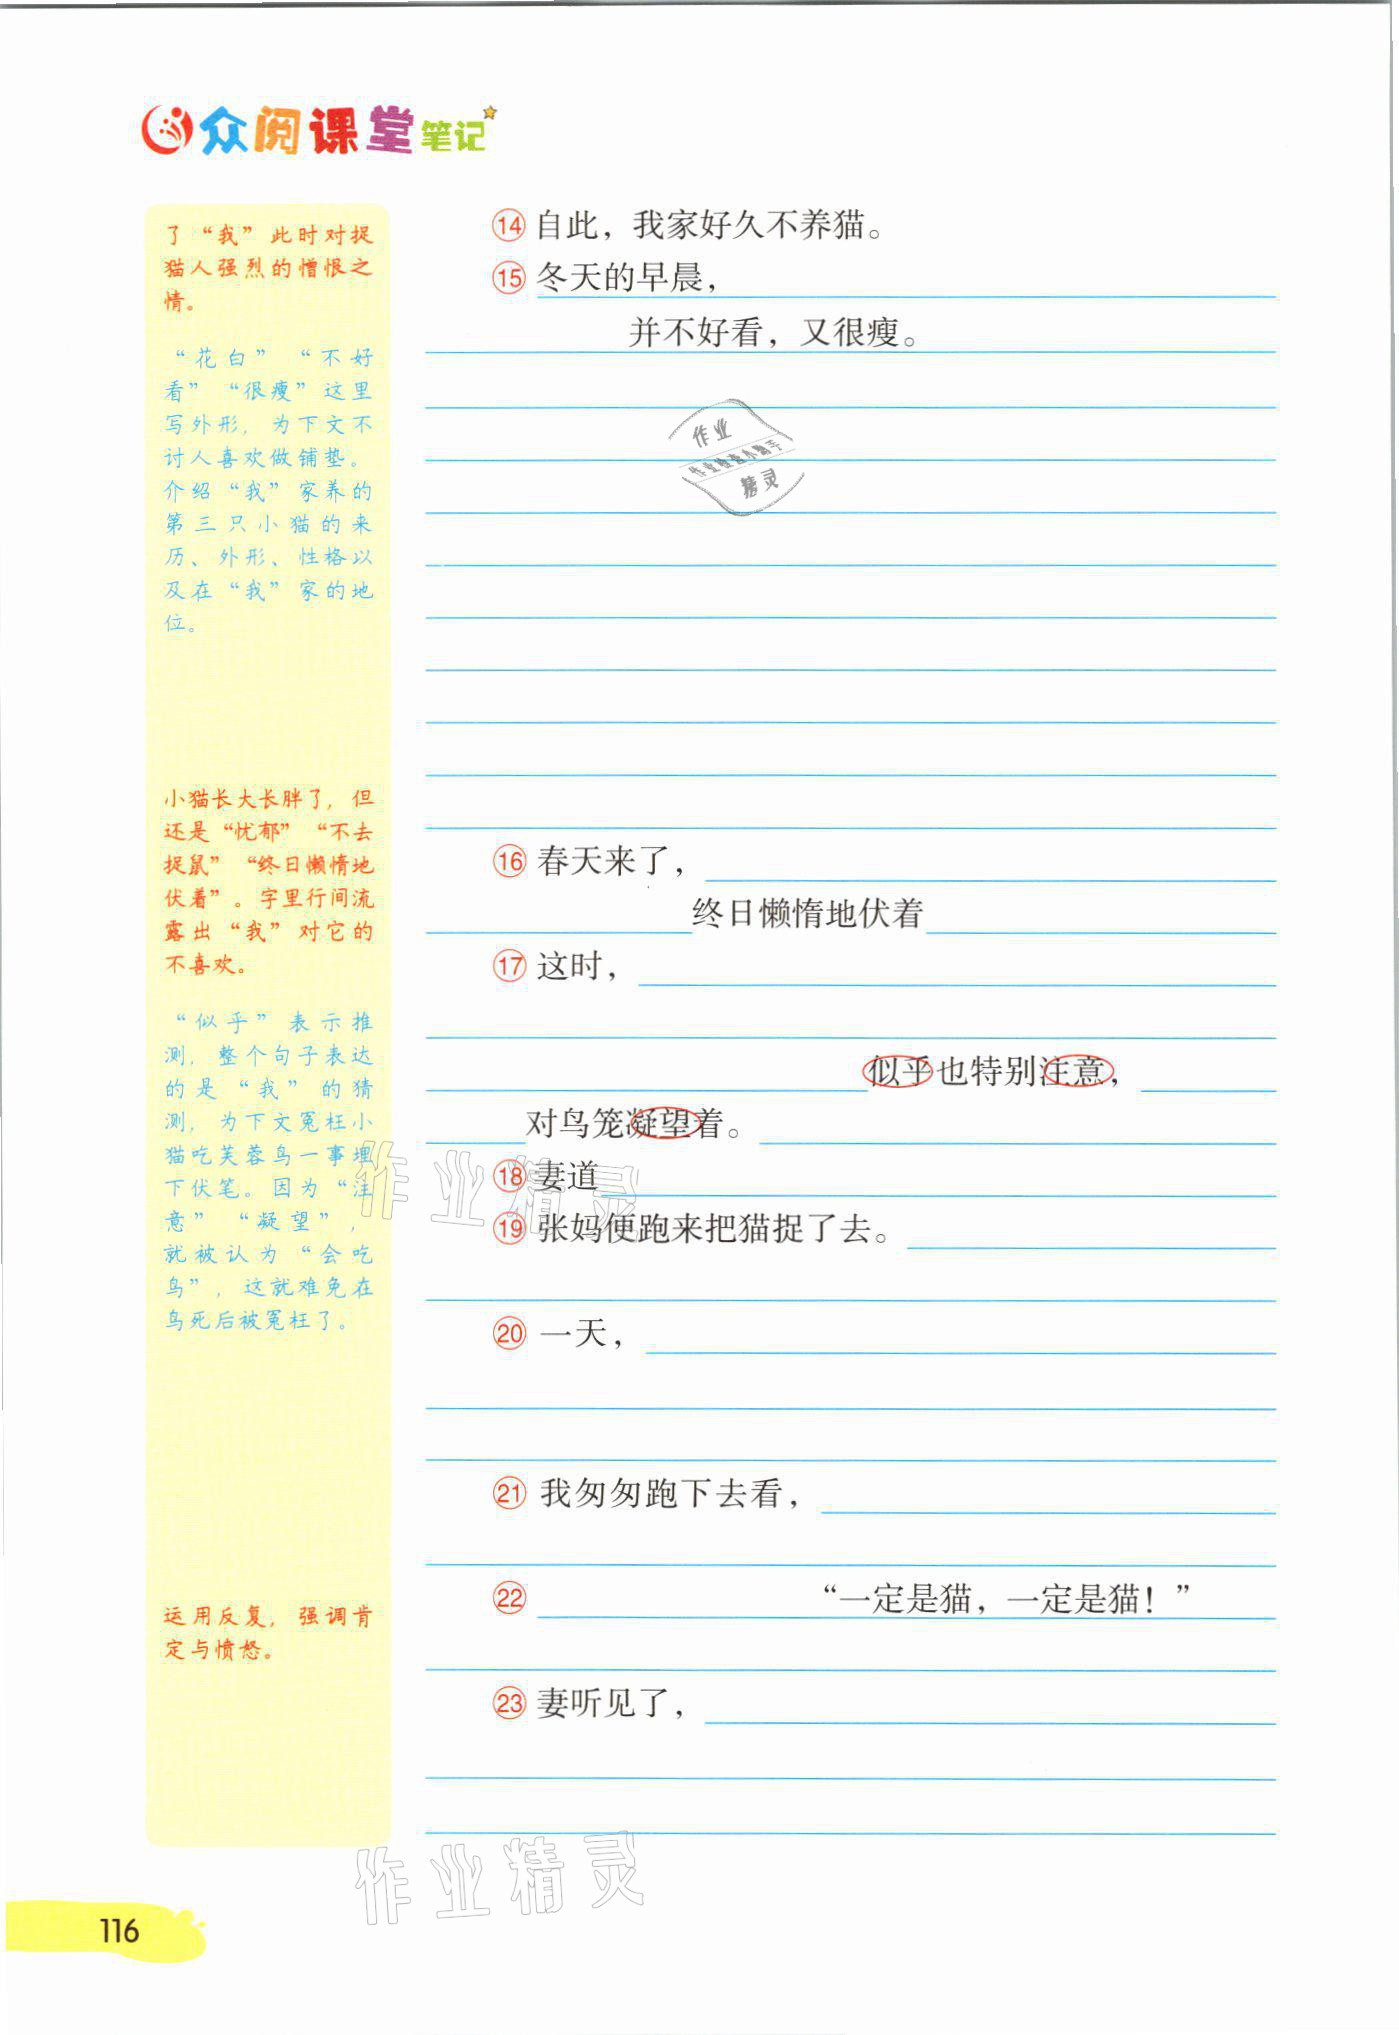 众阅课堂笔记
了“我”此时对捉
猫人强烈的憎恨之
情。
“花白”“不好
看”“很瘦”这里
写外形，为下文不
讨人喜欢做铺垫。
介绍“我”家养的
第三只小猫的来
历、外形、性格以
及在“我”家的地
位。
小猫长大长胖了，但
还是“忧郁”“不去
捉鼠”“终日懒惰地
伏着”。字里行间流
露出“我”对它的
不喜欢。
“似乎”表示推
测，整个句子表达
的是“我”的猜
测，为下文冤枉小
猫吃芙蓉鸟一事埋
下伏笔。因为“注
意”“凝望”，
就被认为“会吃
鸟”，这就难免在
鸟死后被冤枉了。
运用反复，强调肯
定与愤怒。
⑭自此，我家好久不养猫。
⑮冬天的早晨，
并不好看，又很瘦。
作业
作业检查小助手
精灵
⑯春天来了，
终日懒惰地伏着
⑰这时，
似乎也特别注意，
对鸟笼凝望着。
⑱妻道
⑲张妈便跑来把猫捉了去。
⑳一天，
㉑我匆匆跑下去看，
㉒“一定是猫，一定是猫！”
㉓妻听见了，
作业精灵
作业精灵
116